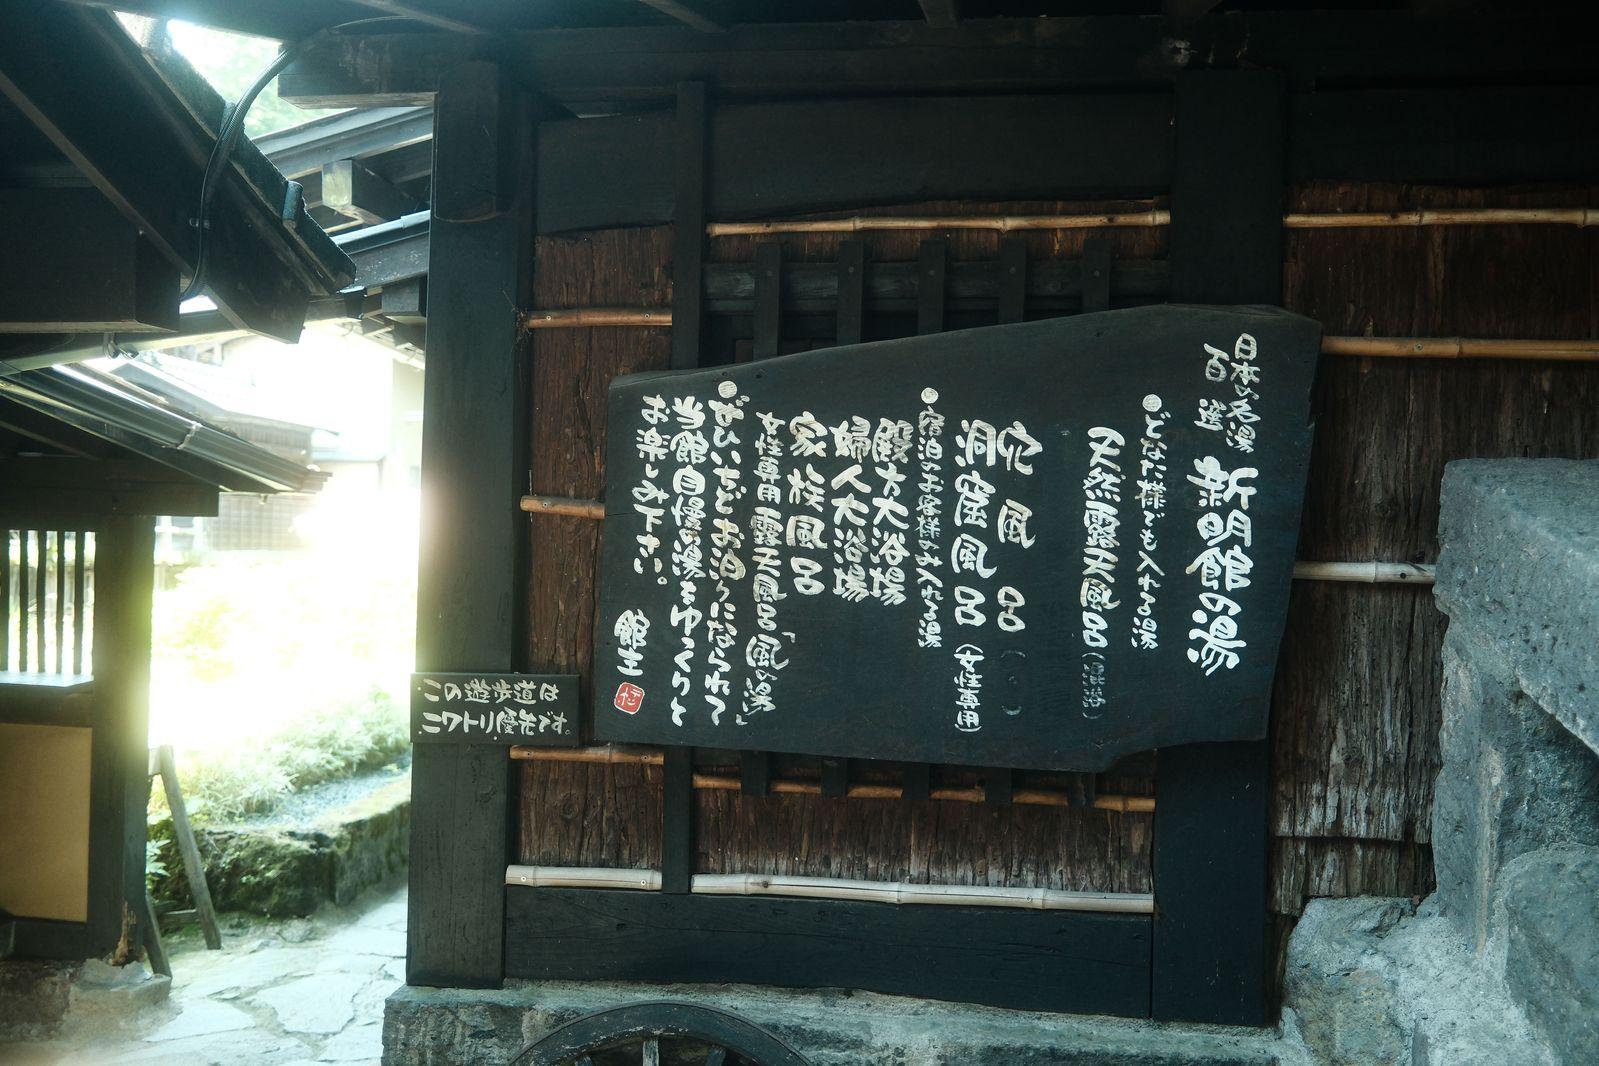 日本の名湯
百選
新明館の湯
●どなた様でも入れる湯
天然露天風呂(混浴)
穴風呂
洞窟風呂(女性専用)
●宿泊のお客様のみ入れる湯
殿方大浴場
婦人大浴場
家族風呂
女性専用露天風呂「風の湯」
●ぜひいちどお泊りになられて
当館自慢の湯をゆっくりと
お楽しみ下さい。
館主
この遊歩道は
ニワトリ優先です。